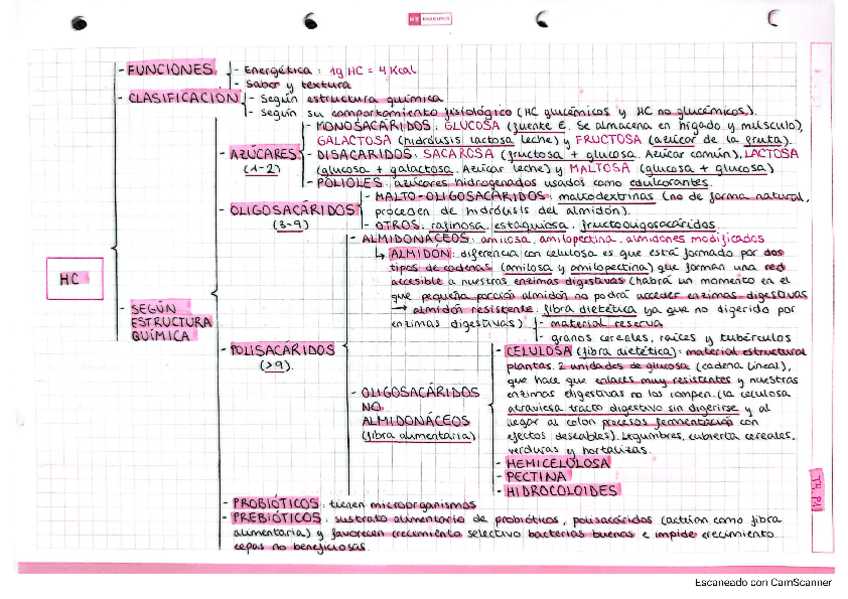 - FUNCIONES
- Energética : 1g HC = 4 Kcal
- Sabor y textura
- CLASIFICACIÓN
- Según estructura química
- Según su comportamiento fisiológico (HC glucémicos y HC no glucémicos).
HC
- SEGÚN
ESTRUCTURA
QUÍMICA
- AZÚCARES
(1-2)
- MONOSACÁRIDOS: GLUCOSA (fuente E. Se almacena en hígado y músculo),
GALACTOSA (hidrólisis lactosa leche) y FRUCTOSA (azúcar de la fruta).
- DISACÁRIDOS: SACAROSA (fructosa + glucosa. Azúcar común), LACTOSA
(glucosa + galactosa. Azúcar leche) y MALTOSA (glucosa + glucosa)
- POLIOLES: azúcares hidrogenados usados como edulcorantes.
- OLIGOSACÁRIDOS
(3-9)
- MALTO-OLIGOSACÁRIDOS: maltodextrinas (no de forma natural,
proceden de hidrólisis del almidón).
- OTROS: rafinosa, estaquiosa, fructooligosacáridos
- POLISACÁRIDOS
(>9)
- ALMIDONÁCEOS: amilosa, amilopectina, almidones modificados
↳ ALMIDÓN: diferencia con celulosa es que está formado por dos
tipos de cadenas (amilosa y amilopectina) que forman una red
accesible a nuestras enzimas digestivas (habrá un momento en el
que pequeña porción almidón no podrá acceder enzimas digestivas
→ almidón resistente: fibra dietética ya que no digerido por
enzimas digestivas)
- material reserva
- granos cereales, raíces y tubérculos
- OLIGOSACÁRIDOS
NO
ALMIDONÁCEOS
(fibra alimentaria)
- CELULOSA (fibra dietética): material estructural
plantas. 2 unidades de glucosa (cadena lineal),
que hace que enlaces muy resistentes y nuestras
enzimas digestivas no los rompen. (la celulosa
atraviesa tracto digestivo sin digerirse y al
llegar al colon procesos fermentación con
efectos deseables). Legumbres, cubierta cereales,
verduras y hortalizas.
- HEMICELULOSA
- PECTINA
- HIDROCOLOIDES
- PROBIÓTICOS: tienen microorganismos
- PREBIÓTICOS: sustrato alimentario de probióticos, polisacáridos (actúan como fibra
alimentaria) y favorecen crecimiento selectivo bacterias buenas e impide crecimiento
cepas no beneficiosas.
Escaneado con CamScanner